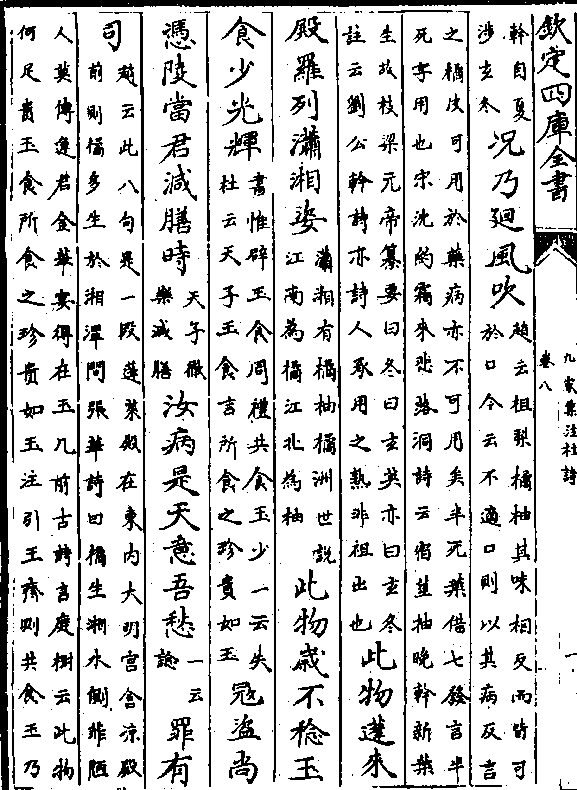 欽定四庫全書
九家集注杜詩
卷八
一
幹自夏趙云柤棃橘柚其味相反而皆可
涉玄冬況乃迴風吹於口今云不適口則以其病反言
之橘皮可用於藥病亦不可用矣半死葉借七發言半
死亭用也宋沈約霜來悲落洞詩云宿莖抽晚幹新葉
生故枝梁元帝纂要曰冬曰玄英亦曰玄冬
註云劉公幹詩亦詩人承用之熟非祖出也此物蓬來
殿羅列瀟湘姿瀟湘有橘柚橘洲世説
江南為橘江北為柚此物歳不稔玉
食少光輝書惟辟玉食周禮共食玉少一云失
杜云天子玉食言所食之珍貴如玉冦盗尚
憑陵當君減膳時天子徹
樂減膳汝病是天意吾愁一云
諗罪有
司趙云此八句是一段蓬萊殿在東内大明宫含凉殿
前則橘多生於湘潭間張華詩曰橘生湘水側菲陋
人莫傳逢君金華宴得在玉几前古詩言庭樹云此物
何足貴玉食所食之珍貴如玉注引王齊則共食玉乃